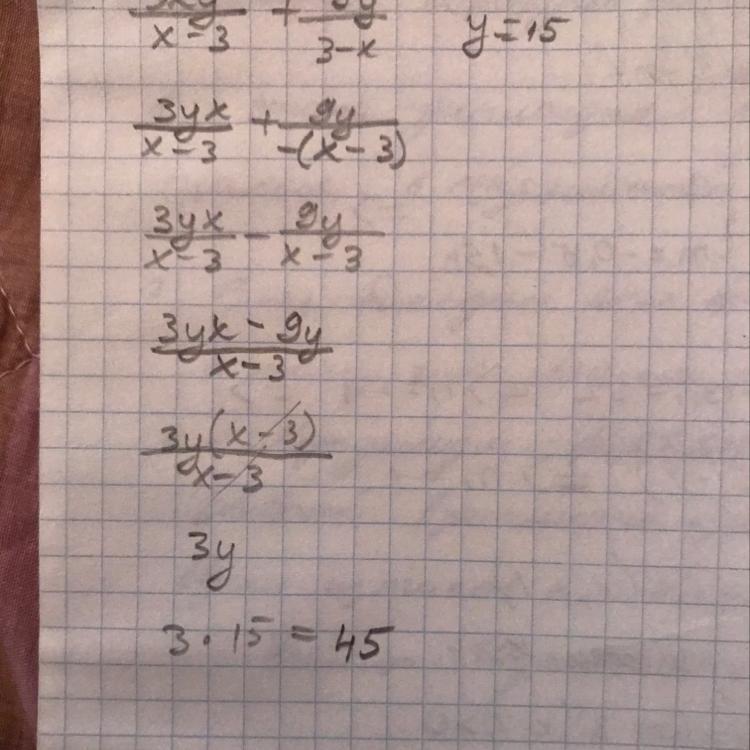 x-3 + 3-x y=15
3yx/x-3 + 9y/-(x-3)
3yx/x-3 - 9y/x-3
3yx-9y/x-3
3y(x-3)/x-3
3y
3·15=45